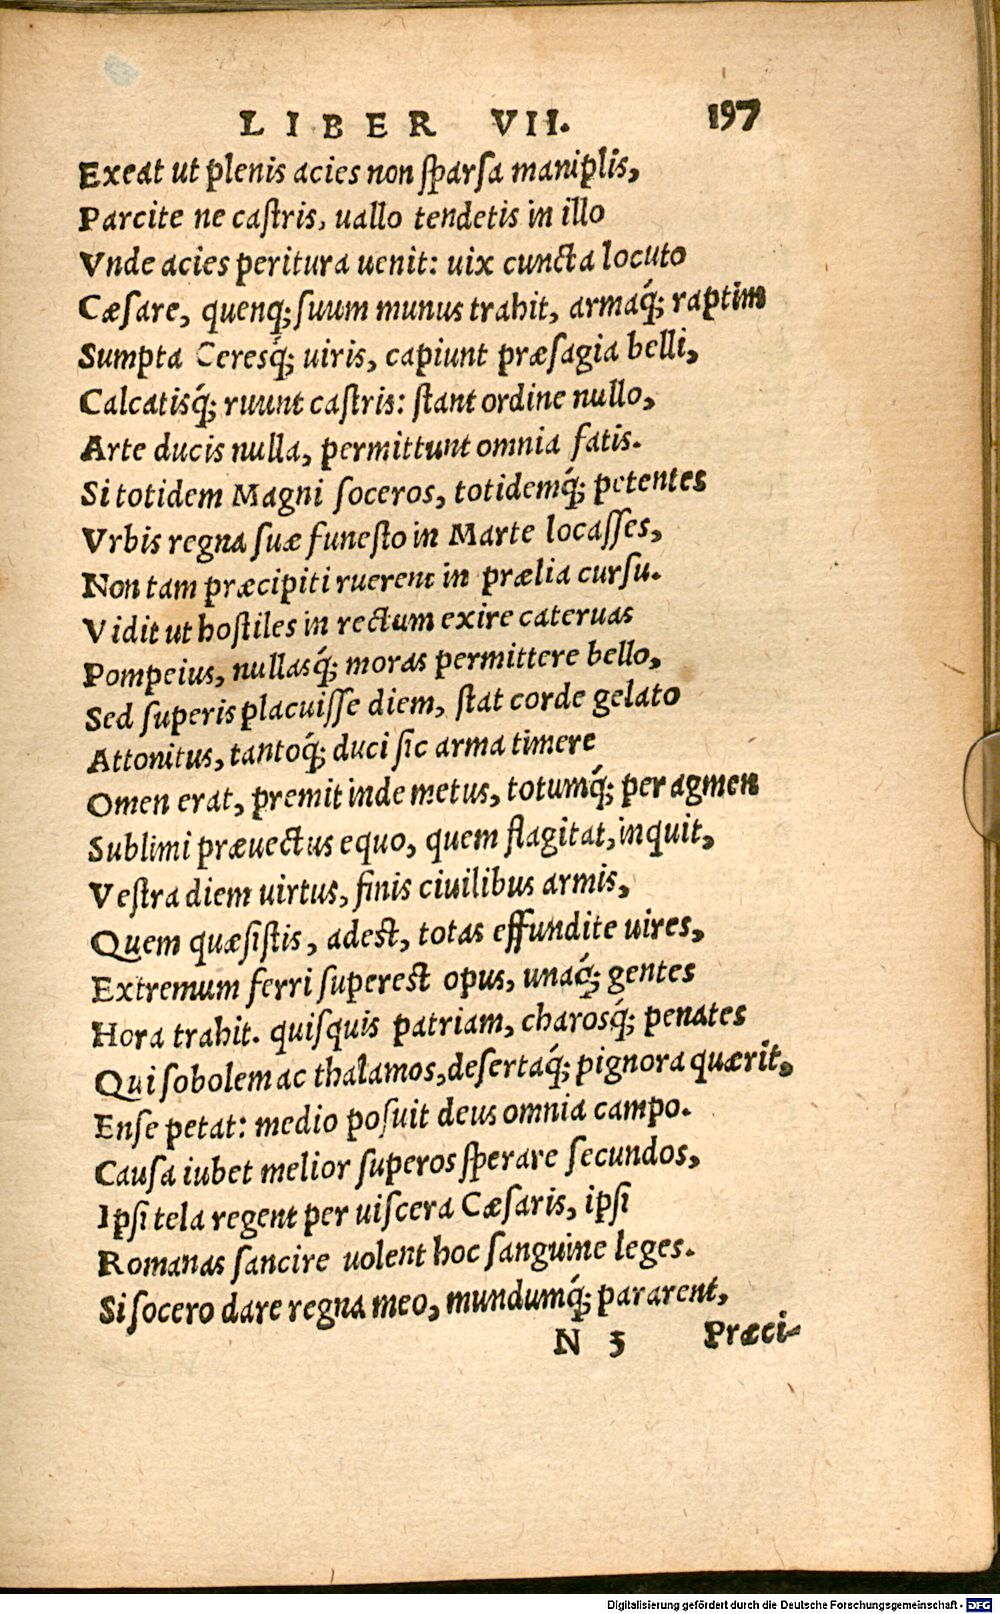 LIBER VII. 197
Exeat ut plenis acies non ſparſa maniplis,
Parcite ne caſtris, uallo tendetis in illo
Vnde acies peritura uenit: uix cuncta locuto
Cæſare, quenq; ſuum munus trahit, armaq́; raptim
Sumpta Ceresq́; uiris, capiunt præſagia belli,
Calcatisq́; ruunt caſtris: ſtant ordine nullo,
Arte ducis nulla, permittunt omnia fatis.
Si totidem Magni ſoceros, totidemq́; petentes
Vrbis regna ſuæ funeſto in Marte locaſſes,
Non tam præcipiti ruerent in prælia curſu.
Vidit ut hoſtiles in rectum exire cateruas
Pompeius, nullasq́; moras permittere bello,
Sed ſuperis placuiſſe diem, ſtat corde gelato
Attonitus, tantoq́; duci ſic arma timere
Omen erat, premit inde metus, totumq́; per agmen
Sublimi præuectus equo, quem flagitat, inquit,
Veſtra diem uirtus, finis ciuilibus armis,
Quem quæſiſtis, adest, totas effundite uires,
Extremum ferri ſuperest opus, unaq́; gentes
Hora trahit. quiſquis patriam, charosq́; penates
Qui ſobolem ac thalamos, deſertaq́; pignora quærit,
Enſe petat: medio poſuit deus omnia campo.
Cauſa iubet melior ſuperos ſperare ſecundos,
Ipſi tela regent per uiſcera Cæſaris, ipſi
Romanas ſancire uolent hoc ſanguine leges.
Si ſocero dare regna meo, mundumq́; pararent,
N 5 Præci-
Digitalisierung gefördert durch die Deutsche Forschungsgemeinschaft - DFG